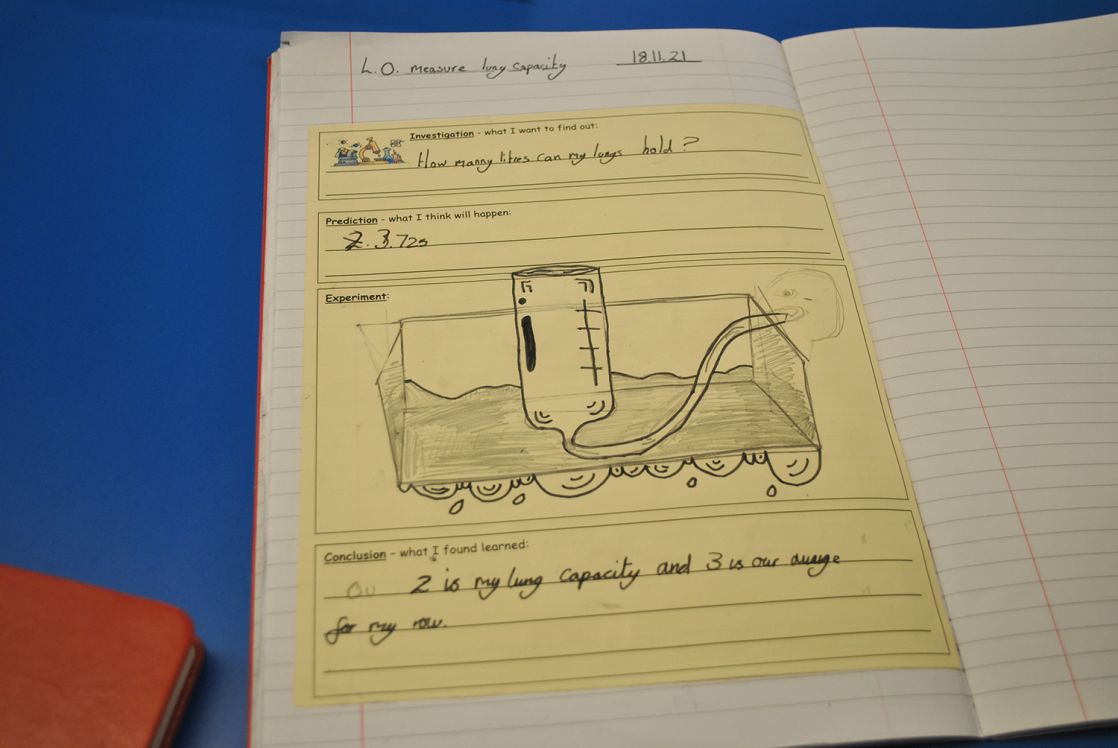 L.O. measure lung capacity 18.11.21
Investigation - what I want to find out:
How manny litres can my lungs hold?
Prediction - what I think will happen:
3.725
Experiment:
Conclusion - what I found learned:
Ou 2 is my lung capacity and 3 is our avarge
for my row.